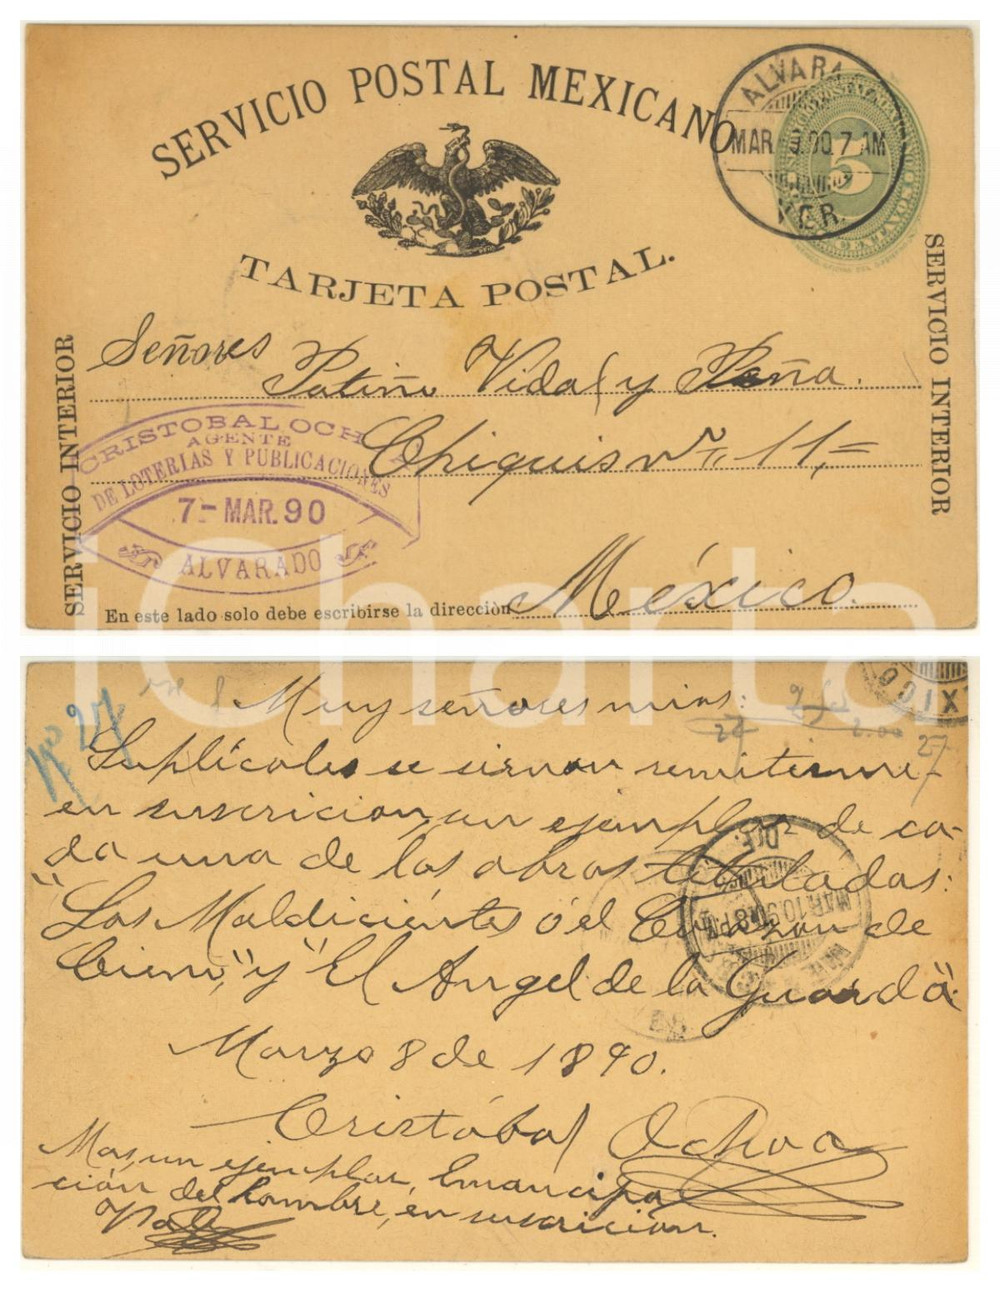 SERVICIO POSTAL MEXICANO
ALVARA
MAR 9.90. 7 AM
VER.
5
TARJETA POSTAL.
SERVICIO INTERIOR
SERVICIO INTERIOR
Señores
Patiño Vidal y Peña.
Chiquis nº, 11,=
México.
CRISTOBAL OCH
AGENTE
DE LOTERIAS Y PUBLICACIONES
7- MAR. 90
ALVARADO
En este lado solo debe escribirse la dirección
iCharta
Nº 27
Muy señores mios:
27
2.00
27
XICO
Suplícoles se sirvan remitirme
en suscricion, un ejemplar de ca-
da una de las obras tituladas:
"Los Maldicientes ó el Corazon de
Cieno," y "El Angel de la Guarda".
MAR 10 90 8 P.M
Marzo 8 de 1890.
Cristóbal Ochoa
Mas, un ejemplar, Emancipa
ción del hombre, en suscricion.
Vale